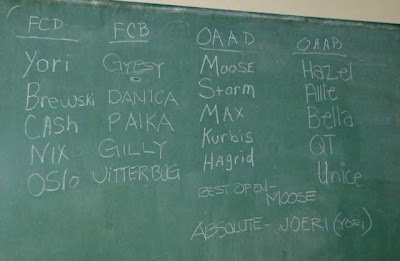 FCD FCB OAAD OAAB
Yori GYPSY MOOSE HAZel
Brewski DANICA Storm Allie
CASH PAIKA MAX Bella
NIX GILLY Kurbis QT
OSlo JITTERBUG HAgrid Unice
BEST OPEN- MOOSE
ABSOLUTE- JOERI (YORI)